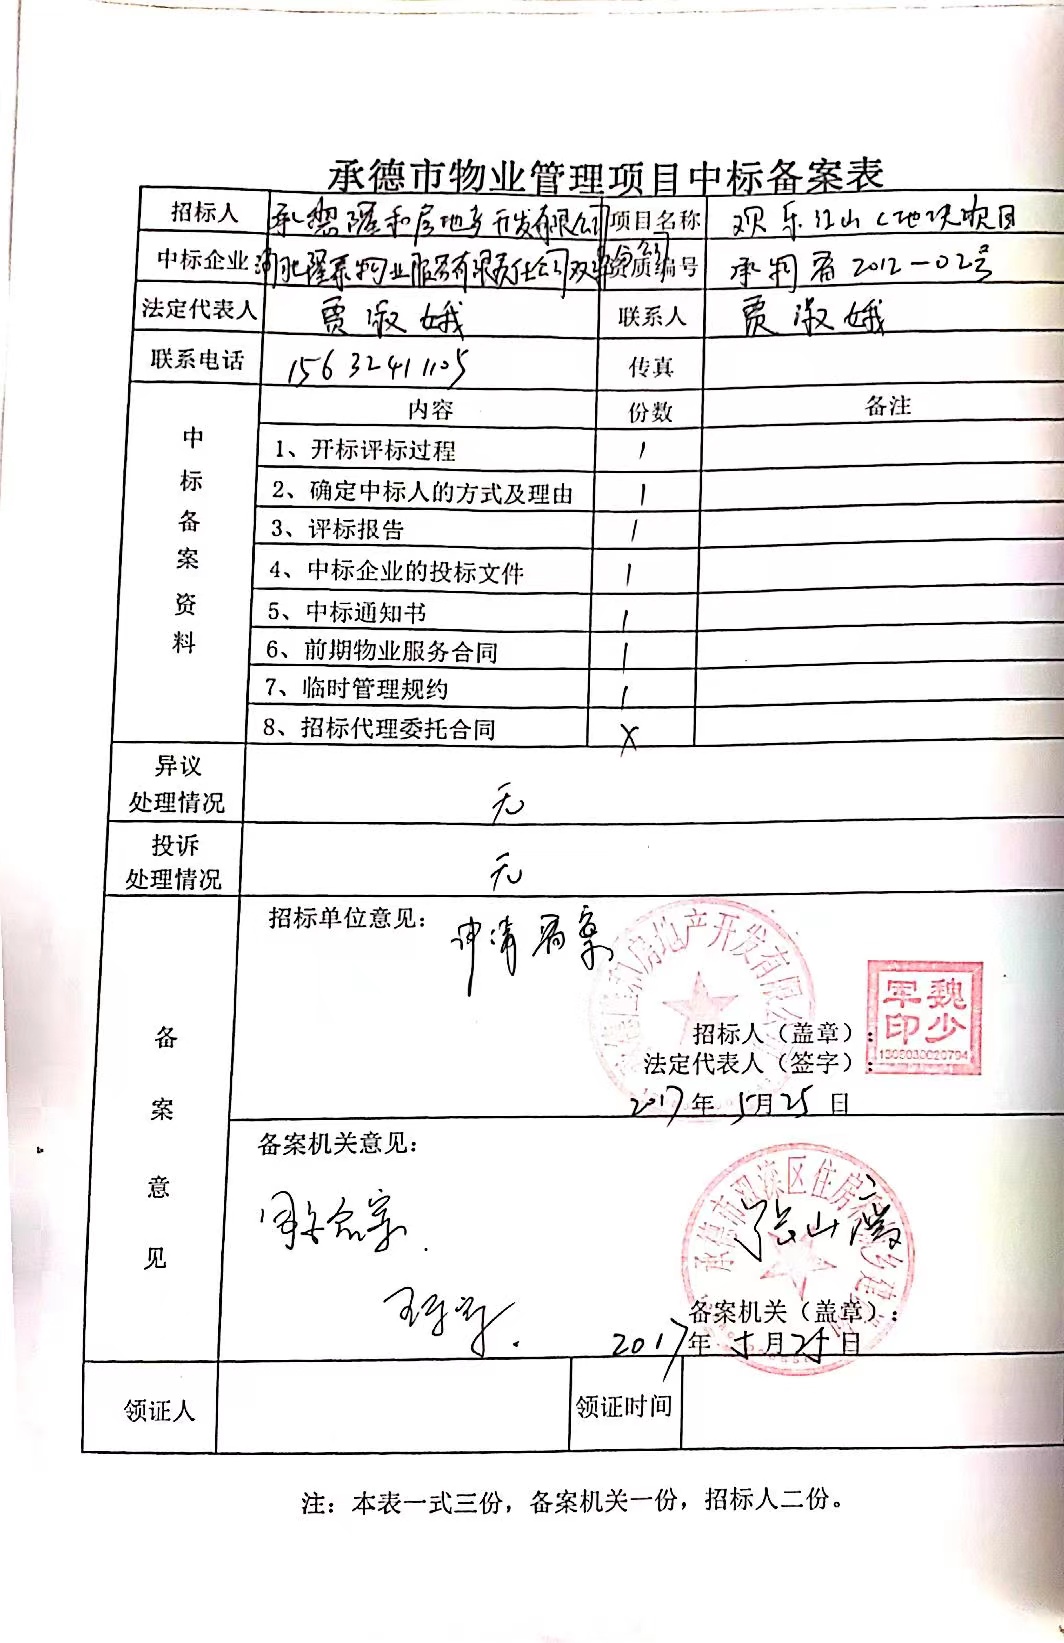 承德市物业管理项目中标备案表
招标人 承德隆和房地产开发有限公司 项目名称 欢乐江山C地块项目
中标企业 物业服务有限责任公司双滦分公司 资质编号 承物备2012-02号
法定代表人 贾淑娥 联系人 贾淑娥
联系电话 15632411105 传真
中标备案资料
内容 份数 备注
1、开标评标过程 1
2、确定中标人的方式及理由 1
3、评标报告 1
4、中标企业的投标文件 1
5、中标通知书 1
6、前期物业服务合同 1
7、临时管理规约 1
8、招标代理委托合同 X
异议
处理情况 无
投诉
处理情况 无
备案意见
招标单位意见: 申请备案
房地产开发有限公司
魏少军印
1308030020794
招标人（盖章）:
法定代表人（签字）:
2017年5月25日
备案机关意见:
同意备案.
承德市双滦区住房和城乡建设局
备案机关（盖章）:
2017年5月25日
领证人 领证时间
注：本表一式三份，备案机关一份，招标人二份。